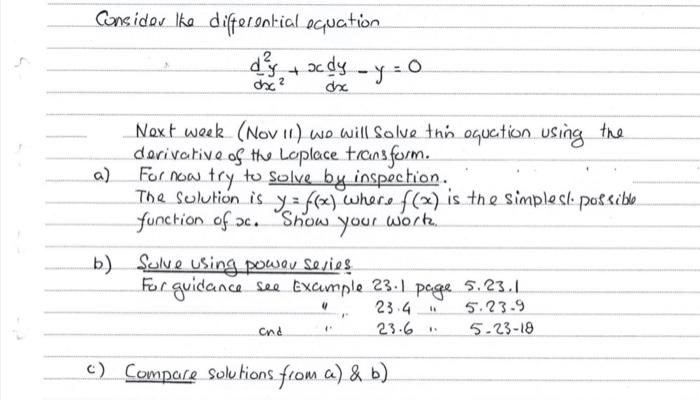 Consider the differential equation
d²y/dx² + x dy/dx - y = 0
Next week (Nov 11) we will solve this equation using the
derivative of the Laplace transform.
a) For now try to solve by inspection.
The solution is y = f(x) where f(x) is the simplest possible
function of x. Show your work.
b) Solve using power series
For guidance see Example 23.1 page 5.23.1
" 23.4 " 5.23-9
and " 23.6 " 5-23-18
c) Compare solutions from a) & b)